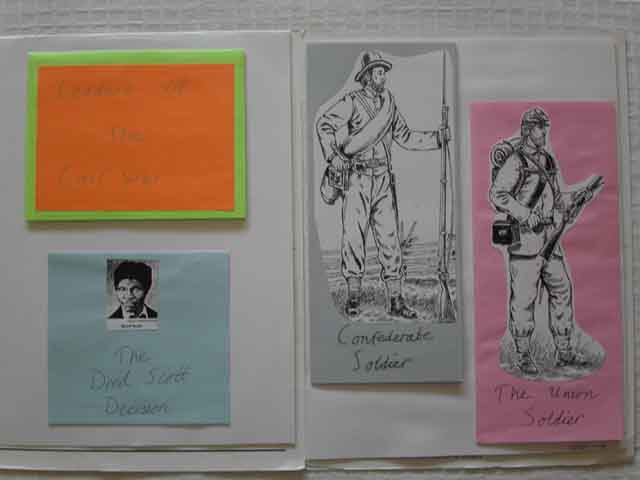 Leaders of
The
Civil War
The
Dred Scott
Decision
Confederate
Soldier
The Union
Soldier